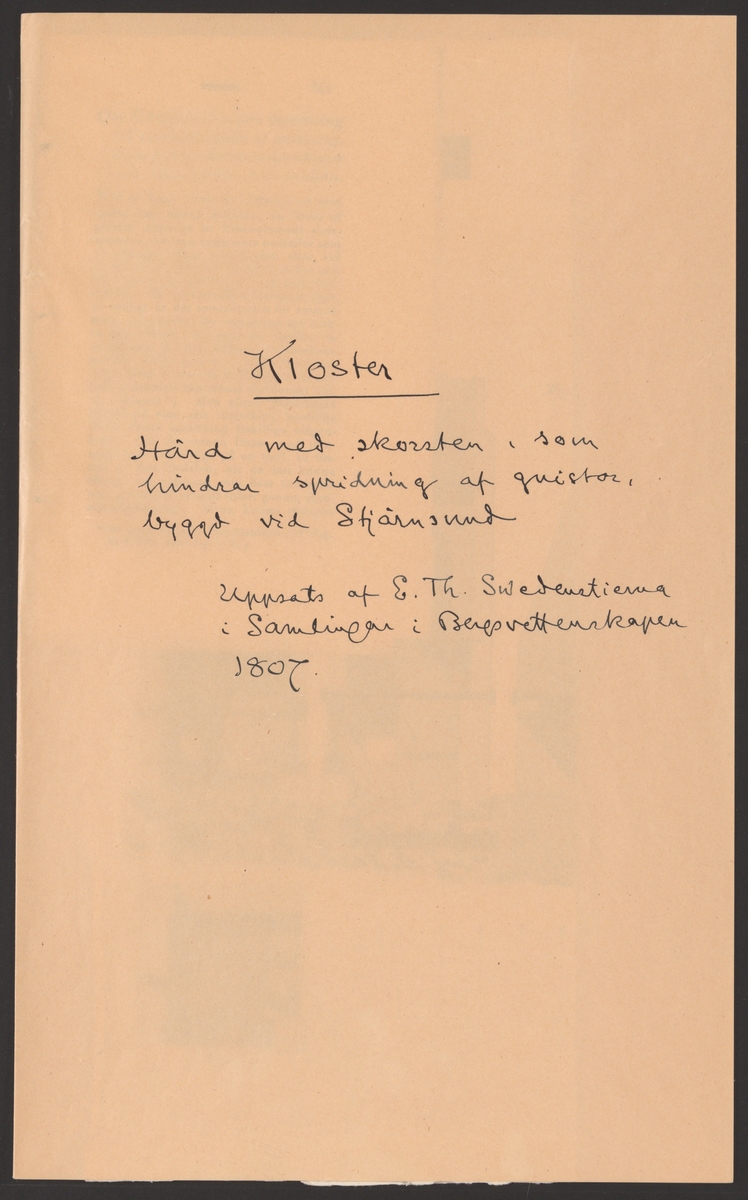 Kloster
Härd med skorsten, som
hindrar spridning af gnistor,
byggd vid Stjärnsund
Uppsats af E. Th. Swedenstierna
i Samlingar i Bergsvettenskapen
1807.